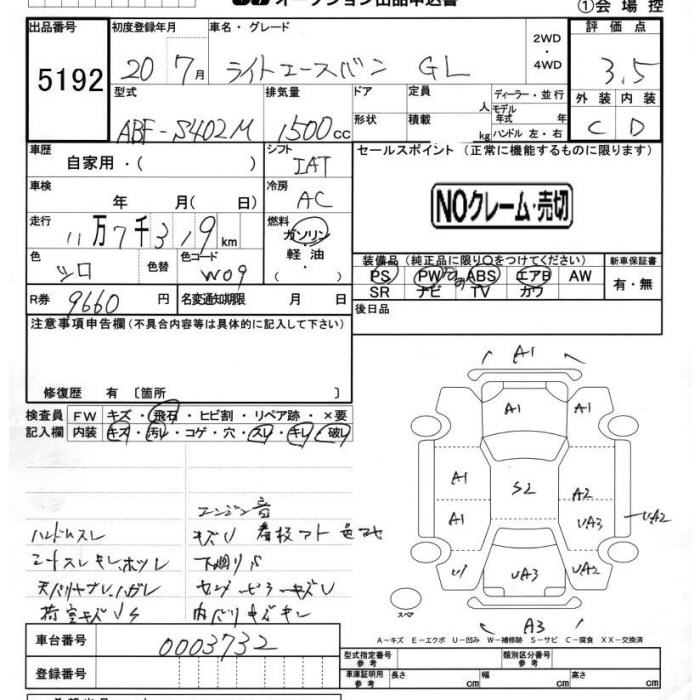 オークション出品申込書
①会場控
出品番号 初度登録年月 車名・グレード 2WD・4WD 評価点
5192 20 7月 ライトエースバン GL 3.5
型式 排気量 ドア 定員 人 ディーラー・並行 外装 内装
ABF-S402M 1500cc 形状 積載 kg モデル年式 年 ハンドル 左・右 C D
車歴 自家用・( ) シフト IAT セールスポイント (正常に機能するものに限ります)
車検 年 月( 日) 冷房 AC
NOクレーム・売切
走行 11万7千319km 燃料 ガソリン・軽油・( )
色 シロ 色替 色コード W09
装備品 (純正品に限り〇をつけてください) 新車保証書
PS PW ABS エアB AW 有・無
SR ナビ TV カワ
R券 9660円 名変通知期限 月 日 後日品
注意事項申告欄(不具合内容等は具体的に記入して下さい)
修復歴 有 〔箇所 〕
検査員 FW キズ・飛石・ヒビ割・リペア跡・×要
記入欄 内装 キズ・汚レ・コゲ・穴・スレ・キレ・破レ
エンジン音
ハンドルスレ キズU 看板アト 色アセ
シートスレキレホツレ 下廻りS
天バリヤブレ、ハガレ センターピラーキズU
荷室キズUS 内バリキズキレ
A1
A1 A1
A1 S2 A2
A1 UA3 UA2
U1 UA3 UA2
スペア
A3
A－キズ E－エクボ U－凹み W－補修跡 S－サビ C－腐食 XX－交換済
車台番号 0003732
登録番号
型式指定番号 参考 類別区分番号 参考
車庫証明用 参考 長さ cm 幅 cm 高さ cm